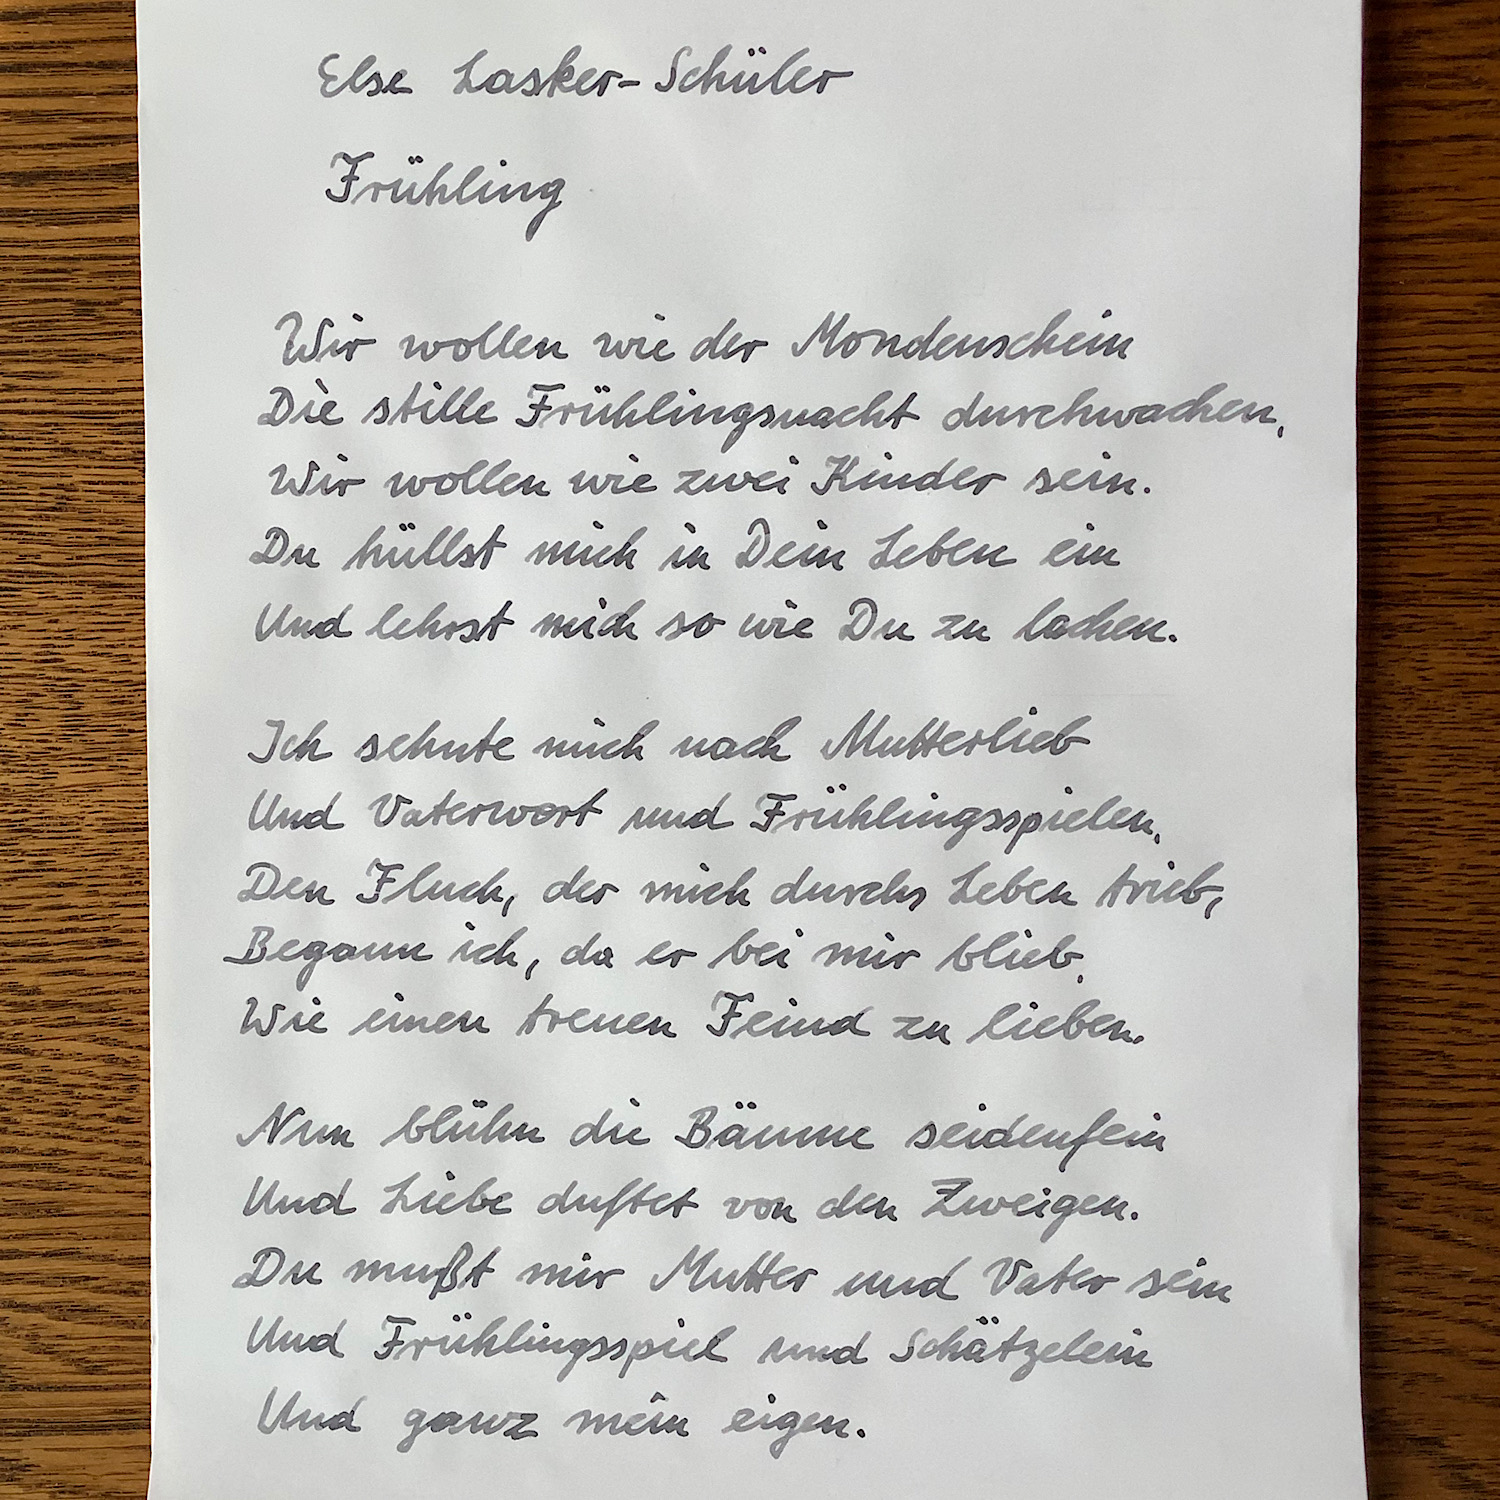 Else Lasker-Schüler
Frühling
Wir wollen wie der Mondenschein
Die stille Frühlingsnacht durchwachen,
Wir wollen wie zwei Kinder sein.
Du hüllst mich in Dein Leben ein
Und lehrst mich so wie Du zu lachen.
Ich sehnte mich nach Mutterlieb
Und Vaterwort und Frühlingsspielen,
Den Fluch, der mich durchs Leben trieb,
Begann ich, da er bei mir blieb,
Wie einen treuen Feind zu lieben.
Nun blühn die Bäume seidenfein
Und Liebe duftet von den Zweigen.
Du mußt mir Mutter und Vater sein
Und Frühlingsspiel und Schätzelein
Und ganz mein eigen.